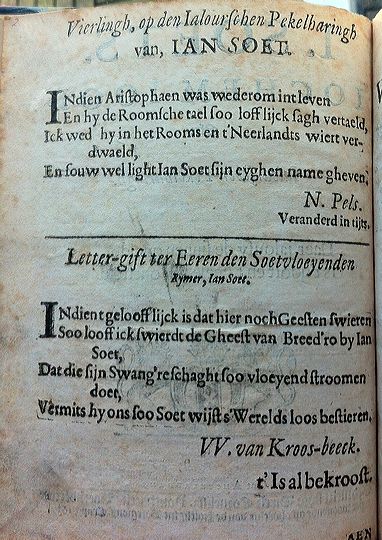 Vierlingh, op den Ialourschen Pekelharingh
van, IAN SOET.
INdien Aristophaen was wederom int leven
En hy de Roomsche tael soo lofflijck sagh vertaeld,
Ick wed hy in het Rooms en t'Neerlandts wiert ver-
dwaeld,
En souw wel light Ian Soet sijn eyghen name gheven.
N. Pels.
Veranderd in tijts.
Letter-gift ter Eeren den Soetvloeyenden
Rymer, Ian Soet.
INdien t gelooflijck is dat hier noch Geesten swieren
Soo looff ick swierdt de Gheest van Breed'ro by Ian
Soet,
Dat die sijn Swang're schaght soo vloeyend stroomen
doet,
Vermits hy ons soo Soet wijst s'Werelds loos bestieren.
VV. van Kroos-beeck.
t'Is al bekroost.
AEN